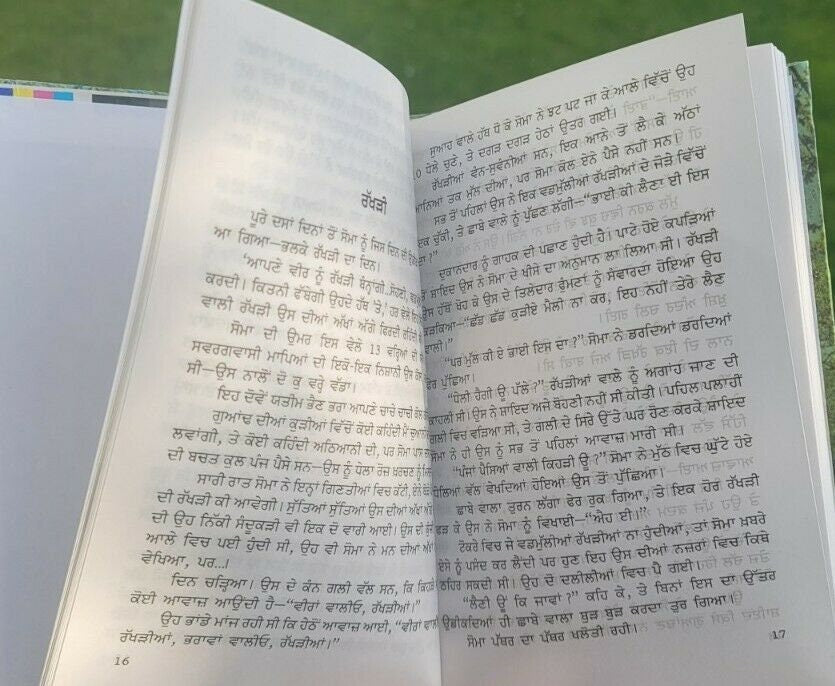 ਰੱਖੜੀ
ਪੂਰੇ ਦਸਾਂ ਦਿਨਾਂ ਤੋਂ ਸੋਮਾ ਨੂੰ ਜਿਸ ਦਿਨ ਦੀ
ਆ ਗਿਆ—ਭਲਕੇ ਰੱਖੜੀ ਦਾ ਦਿਨ।
'ਆਪਣੇ ਵੀਰ ਨੂੰ ਰੱਖੜੀ ਬੰਨ੍ਹਾਂਗੀ
ਕਰਦੀ। ਕਿਤਨੀ ਫੱਬੇਗੀ ਉਹਦੇ ਹੱਥ 'ਤੇ,' ਹਰ ਵੇਲੇ
ਵਾਲੀ ਰੱਖੜੀ ਉਸ ਦੀਆਂ ਅੱਖਾਂ ਅੱਗੇ ਫਿਰਦੀ ਰਹਿੰਦੀ
ਸੋਮਾ ਦੀ ਉਮਰ ਇਸ ਵੇਲੇ 13 ਵਰ੍ਹਿਆਂ ਦੀ
ਸਵਰਗਵਾਸੀ ਮਾਪਿਆਂ ਦੀ ਇਕੋ-ਇਕ ਨਿਸ਼ਾਨੀ ਉਸ
ਸੀ—ਉਸ ਨਾਲੋਂ ਦੋ ਕੁ ਵਰ੍ਹੇ ਵੱਡਾ।
ਇਹ ਦੋਵੇਂ ਯਤੀਮ ਭੈਣ ਭਰਾ ਆਪਣੇ ਚਾਚੇ ਚਾਚੀ ਕੋਲ
ਗੁਆਂਢ ਦੀਆਂ ਕੁੜੀਆਂ ਵਿਚੋਂ ਕੋਈ ਕਹਿੰਦੀ ਮੈਂ
ਲਵਾਂਗੀ, ਤੇ ਕੋਈ ਕਹਿੰਦੀ ਅਠਿਆਨੀ ਦੀ, ਪਰ ਸੋਮਾ ਪਾਸ
ਦੀ ਬਚਤ ਕੁਲ ਪੰਜ ਪੈਸੇ ਸਨ—ਉਸ ਨੂੰ ਧੇਲਾ ਰੋਜ਼ ਖਰਚਣ ਨੂੰ
ਸਾਰੀ ਰਾਤ ਸੋਮਾ ਨੇ ਇਨ੍ਹਾਂ ਗਿਣਤੀਆਂ ਵਿਚ ਕੱਟੀ, ਏਨੇ
ਦੀ ਰੱਖੜੀ ਕੀ ਆਵੇਗੀ। ਸੁੱਤਿਆਂ ਸੁੱਤਿਆਂ ਉਸ ਦੀਆਂ ਅੱਖਾਂ
ਦੀ ਉਹ ਨਿੱਕੀ ਸੰਦੂਕੜੀ ਵੀ ਇਕ ਦੋ ਵਾਰੀ ਆਈ। ਉਸ ਦੀ
ਆਲੇ ਵਿਚ ਪਈ ਹੁੰਦੀ ਸੀ, ਉਹ ਵੀ ਸੋਮਾ ਨੇ ਮਨ ਦੀਆਂ ਅੱਖਾਂ
ਵੇਖਿਆ, ਪਰ...।
ਦਿਨ ਚੜ੍ਹਿਆ। ਉਸ ਦੇ ਕੰਨ ਗਲੀ ਵੱਲ ਸਨ, ਕਿ
ਕੋਈ ਆਵਾਜ਼ ਆਉਂਦੀ ਹੈ—"ਵੀਰਾਂ ਵਾਲੀਓ, ਰੱਖੜੀਆਂ।"
ਉਹ ਭਾਂਡੇ ਮਾਂਜ ਰਹੀ ਸੀ ਕਿ ਹੇਠੋਂ ਆਵਾਜ਼ ਆਈ, "ਵੀਰਾਂ
ਰੱਖੜੀਆਂ, ਭਰਾਵਾਂ ਵਾਲੀਓ, ਰੱਖੜੀਆਂ।"
16
ਸੁਆਹ ਵਾਲੇ ਹੱਥ ਧੋ ਕੇ ਸੋਮਾ ਨੇ ਝਟ ਪਟ ਜਾ ਕੇ ਆਲੇ ਵਿੱਚੋਂ ਉਹ
10 ਧੇਲੇ ਚੁਣੇ, ਤੇ ਦਗੜ ਦਗੜ ਹੇਠਾਂ ਉਤਰ ਗਈ।
ਰੱਖੜੀਆਂ ਵੰਨ-ਸੁਵੰਨੀਆਂ ਸਨ, ਇਕ ਆਨੇ ਤੋਂ ਲੈ ਕੇ ਅੱਠਾਂ
ਆਨਿਆਂ ਤਕ ਮੁੱਲ ਦੀਆਂ, ਪਰ ਸੋਮਾ ਕੋਲ ਏਨੇ ਪੈਸੇ ਨਹੀਂ ਸਨ।
ਸਭ ਤੋਂ ਪਹਿਲਾਂ ਉਸ ਨੇ ਇਕ ਵਡਮੁੱਲੀਆਂ ਰੱਖੜੀਆਂ ਦੇ ਜੋੜੇ ਵਿੱਚੋਂ
ਇਕ ਚੁੱਕੀ, ਤੇ ਛਾਬੇ ਵਾਲੇ ਨੂੰ ਪੁੱਛਣ ਲੱਗੀ—"ਭਾਈ ਕੀ ਲੈਣਾ ਈ ਇਸ
ਦਾ?"
ਦੁਕਾਨਦਾਰ ਨੂੰ ਗਾਹਕ ਦੀ ਪਛਾਣ ਹੁੰਦੀ ਹੈ। ਪਾਟੇ ਹੋਏ ਕਪੜਿਆਂ
ਤੋਂ ਸ਼ਾਇਦ ਉਸ ਨੇ ਸੋਮਾ ਦੇ ਖੀਸੇ ਦਾ ਅਨੁਮਾਨ ਲਾ ਲਿਆ ਸੀ। ਰੱਖੜੀ
ਉਸ ਹੱਥੋਂ ਖੋਹ ਕੇ ਉਸ ਦੇ ਤਿਲੇਦਾਰ ਫੁੰਮਣਾਂ ਨੂੰ ਸੰਵਾਰਦਾ ਹੋਇਆ ਉਹ
ਕੜਕਿਆ—"ਛੱਡ ਛੱਡ ਕੁੜੀਏ ਮੈਲੀ ਨਾ ਕਰ, ਇਹ ਨਹੀਂ ਤੇਰੇ ਲੈਣ
ਵਾਲੀ।"
"ਪਰ ਮੁੱਲ ਕੀ ਏ ਭਾਈ ਇਸ ਦਾ?" ਸੋਮਾ ਨੇ ਡਰਦਿਆਂ ਡਰਦਿਆਂ
ਫੇਰ ਪੁੱਛਿਆ।
"ਧੇਲੀ ਹੈਗੀ ਊ ਪੱਲੇ?" ਰੱਖੜੀਆਂ ਵਾਲੇ ਨੂੰ ਅਗਾਂਹ ਜਾਣ ਦੀ
ਕਾਹਲੀ ਸੀ। ਉਸ ਨੇ ਸ਼ਾਇਦ ਅਜੇ ਬੋਹਣੀ ਨਹੀਂ ਸੀ ਕੀਤੀ। ਪਹਿਲ ਪਲਾਹੀਂ
ਗਲੀ ਵਿਚ ਵੜਿਆ ਸੀ, ਤੇ ਗਲੀ ਦੇ ਸਿਰੇ ਉੱਤੇ ਘਰ ਹੋਣ ਕਰਕੇ ਸ਼ਾਇਦ
ਸੋਮਾ ਨੇ ਹੀ ਉਸ ਨੂੰ ਸਭ ਤੋਂ ਪਹਿਲਾਂ ਆਵਾਜ਼ ਮਾਰੀ ਸੀ।
"ਪੰਜਾਂ ਪੈਸਿਆਂ ਵਾਲੀ ਕਿਹੜੀ ਊ?" ਸੋਮਾ ਨੇ ਮੁੱਠ ਵਿਚ ਘੁੱਟੇ ਹੋਏ
ਧੇਲਿਆਂ ਵੱਲ ਵੇਖਦਿਆਂ ਹੋਇਆਂ ਉਸ ਤੋਂ ਪੁੱਛਿਆ।
ਛਾਬੇ ਵਾਲਾ ਤੁਰਨ ਲੱਗਾ ਫੇਰ ਰੁਕ ਗਿਆ, ਤੇ ਇਕ ਹੋਰ ਰੱਖੜੀ
ਫੜ ਕੇ ਉਸ ਨੇ ਸੋਮਾ ਨੂੰ ਵਿਖਾਈ—"ਐਹ ਈ।"
ਟੋਕਰੇ ਵਿਚ ਜੇ ਵਡਮੁੱਲੀਆਂ ਰੱਖੜੀਆਂ ਨਾ ਹੁੰਦੀਆਂ, ਤਾਂ ਸੋਮਾ ਖ਼ਬਰੇ
ਏਸੇ ਨੂੰ ਪਸੰਦ ਕਰ ਲੈਂਦੀ ਪਰ ਹੁਣ ਇਹ ਉਸ ਦੀਆਂ ਨਜ਼ਰਾਂ ਵਿਚ ਕਿਥੇ
ਠਹਿਰ ਸਕਦੀ ਸੀ। ਉਹ ਦੋ ਦਲੀਲੀਆਂ ਵਿਚ ਪੈ ਗਈ।
"ਲੈਣੀ ਊਂ ਕਿ ਜਾਵਾਂ?" ਕਹਿ ਕੇ, ਤੇ ਬਿਨਾਂ ਇਸ ਦਾ ਉੱਤਰ
ਉਡੀਕਦਿਆਂ ਹੀ ਛਾਬੇ ਵਾਲਾ ਬੁੜ ਬੁੜ ਕਰਦਾ ਤੁਰ ਗਿਆ।
ਸੋਮਾ ਪੱਥਰ ਦਾ ਪੱਥਰ ਖਲੋਤੀ ਰਹੀ।
17